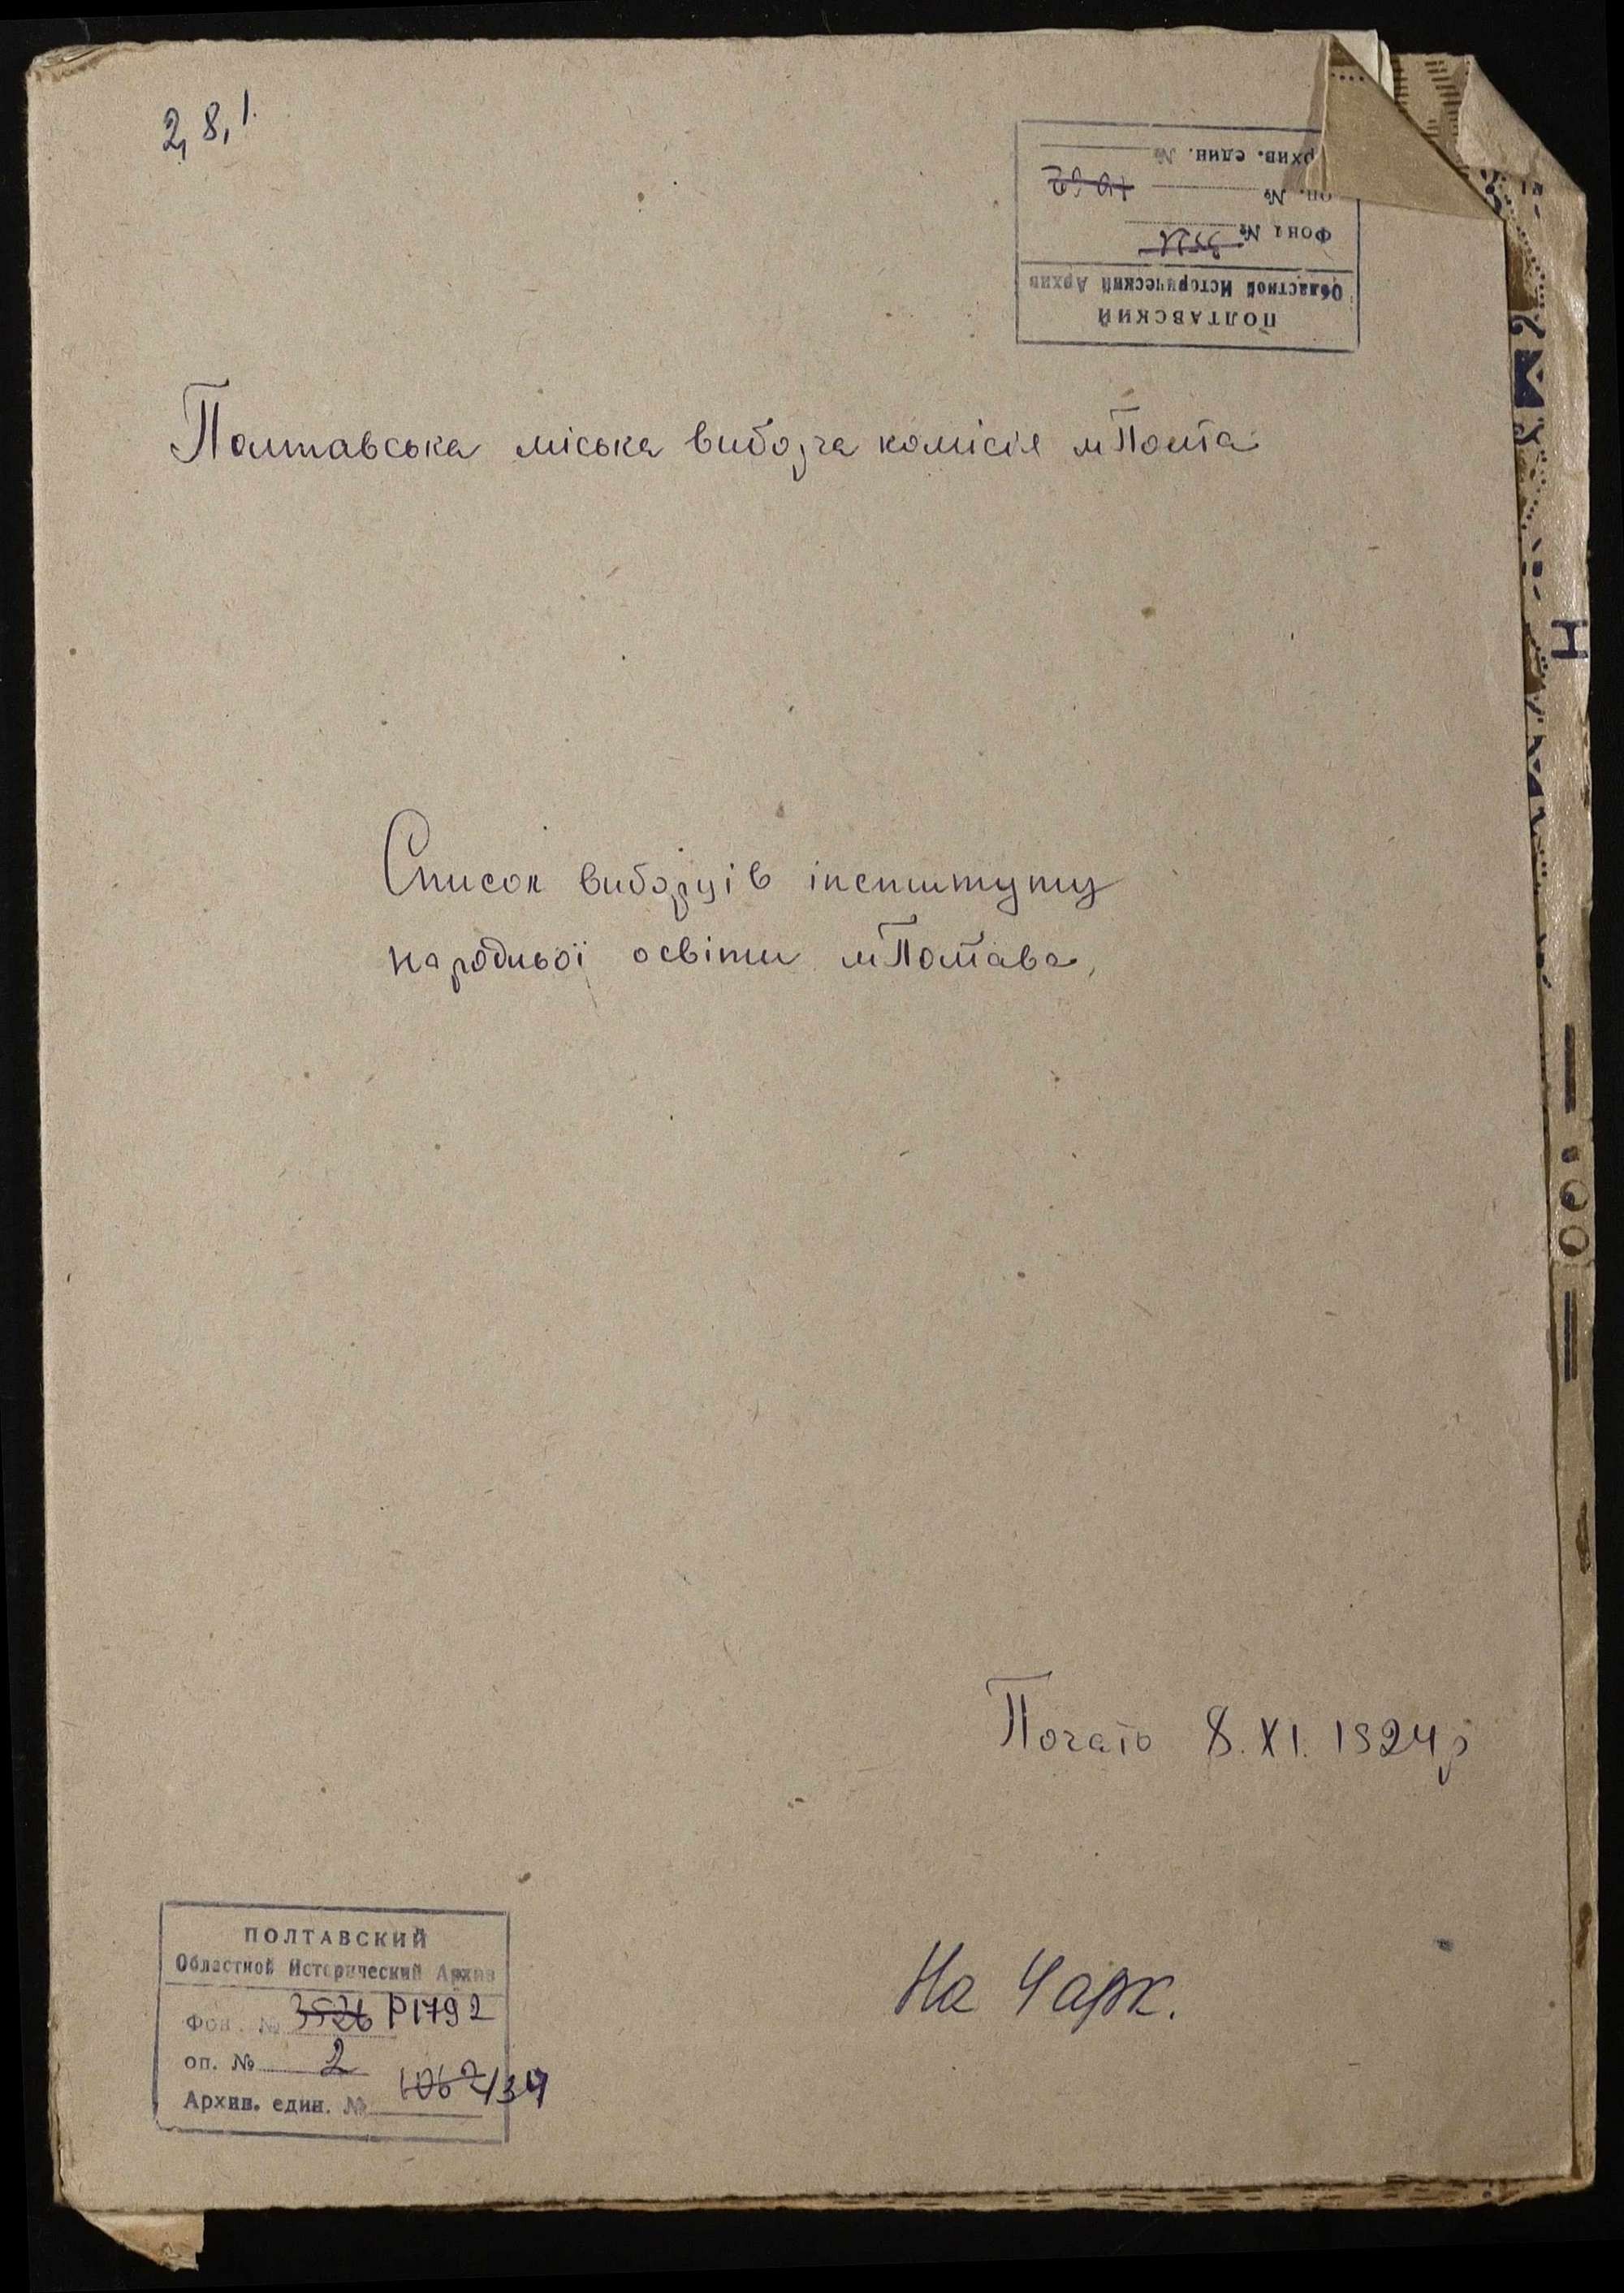 2, 8, 1.
ПОЛТАВСКИЙ
Областной Исторический Архив
Фонд №
оп. №
рхив. един. №
Полтавська міська виборча комісія м Полта
Список виборців інституту
народньої освіти м Полтава,
Почато 8. XI. 1924 р
На 4 арк.
ПОЛТАВСКИЙ
Областной Исторический Архив
Фон. № 3526 Р1792
оп. № 2
Архив. един. № 1062 134